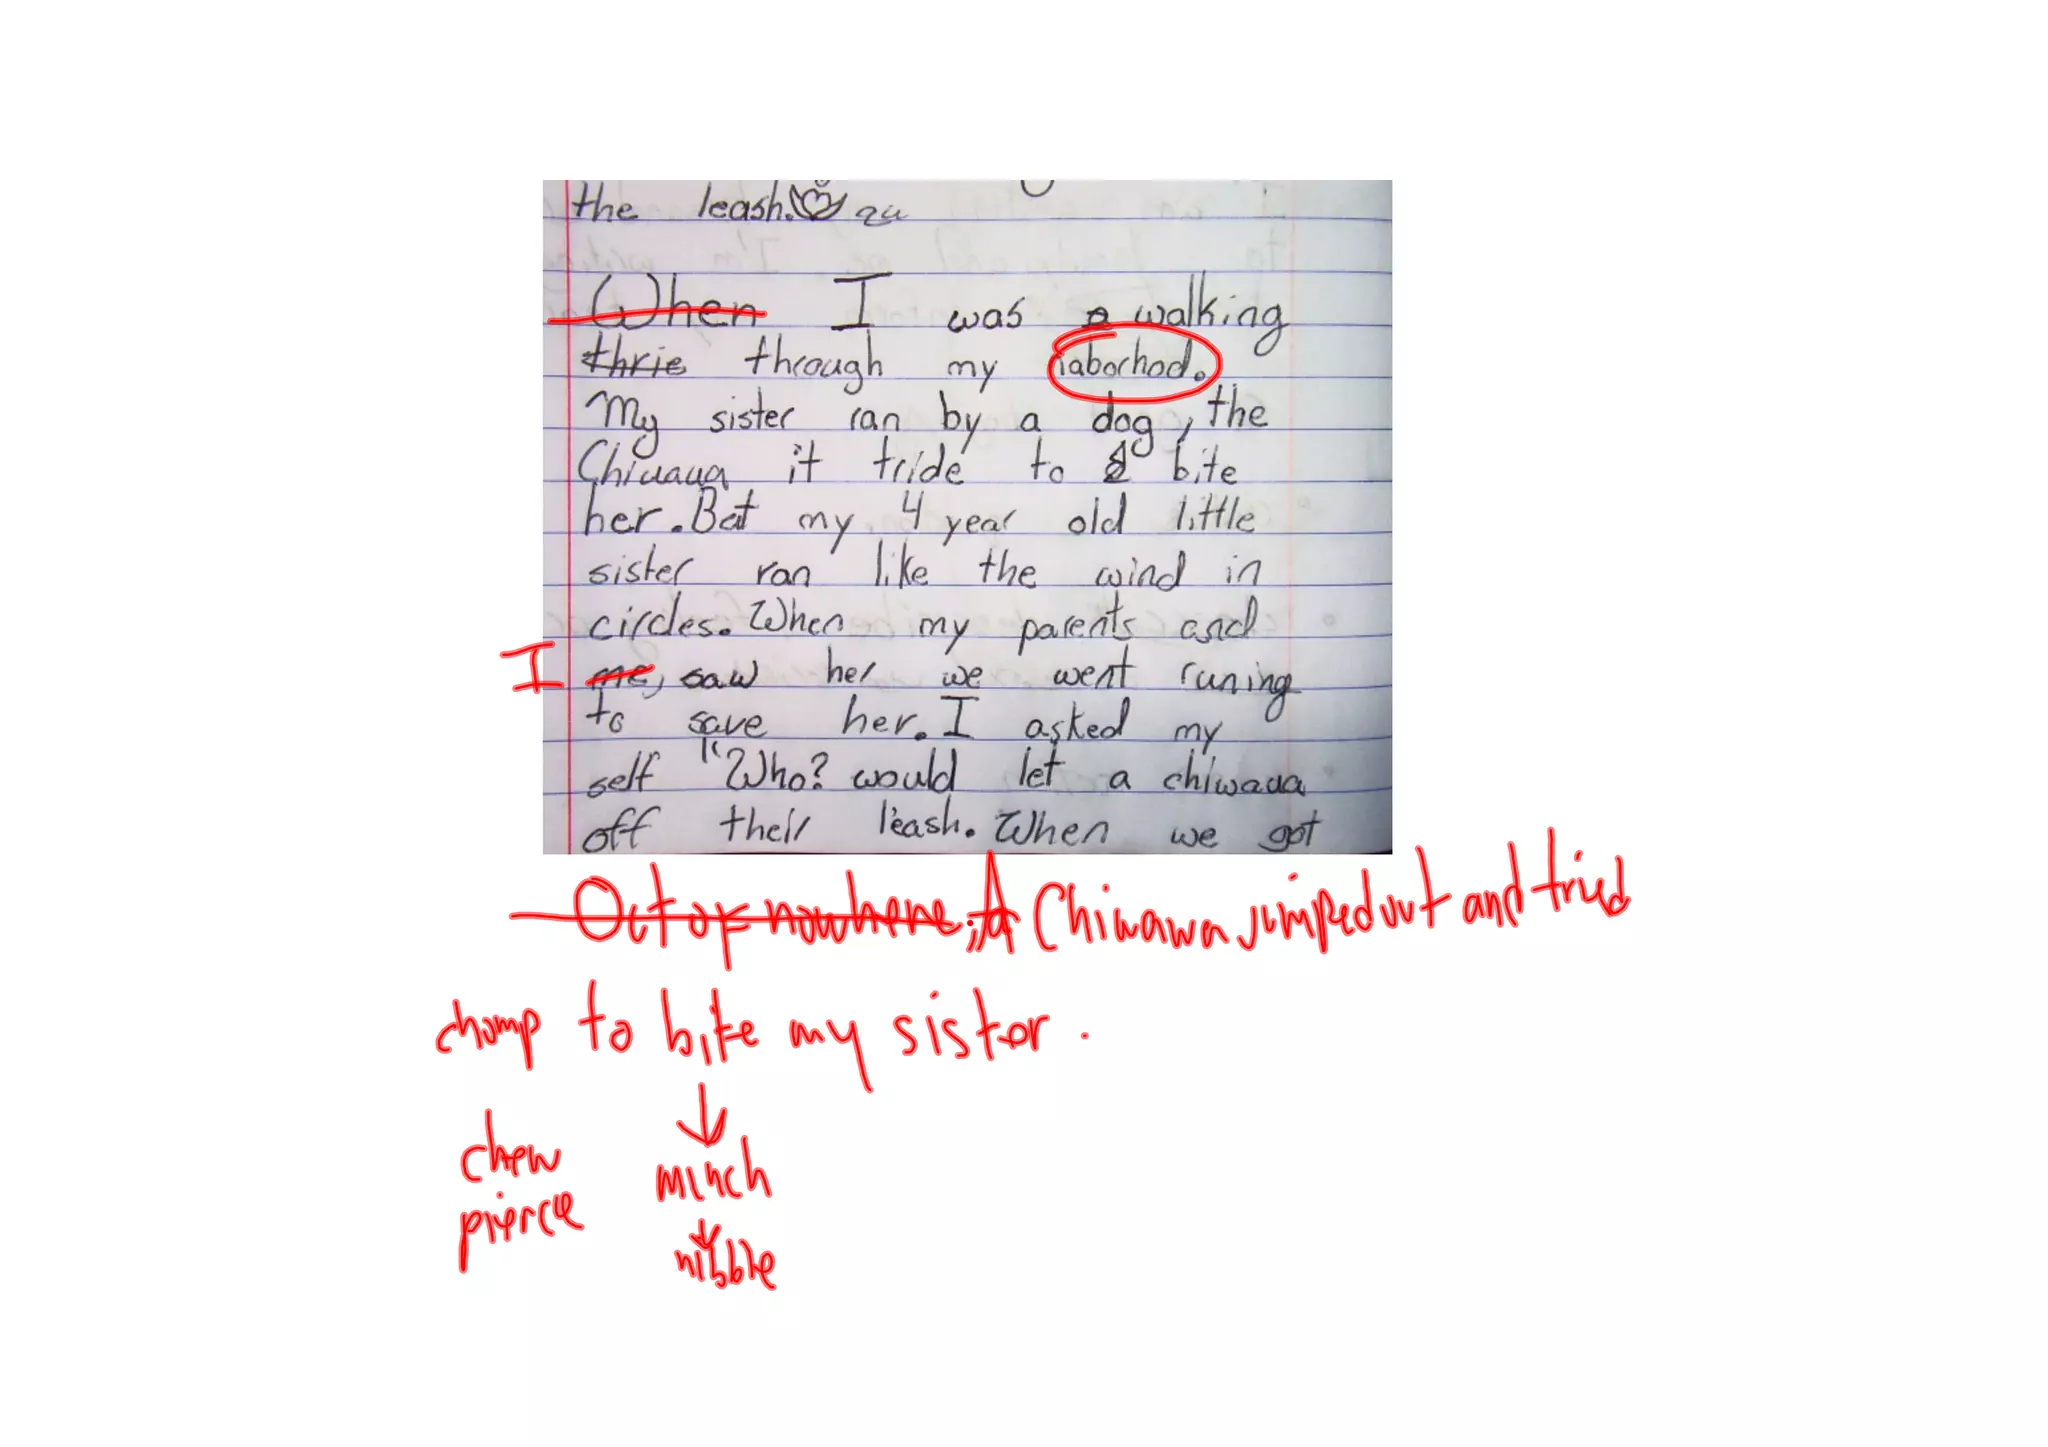 the leash.
When I was a walking
thrie through my iaborhod.
My sister ran by a dog, the
Chiwaua it tride to bite
her. But my 4 year old little
sister ran like the wind in
circles. When my parents and
I me, saw her we went runing
to save her. I asked my
self "Who? would let a chiwaua
off their leash. When we got
Out of nowhere, A Chiwawa jumped out and tried
chomp to bite my sister.
chew munch
pierce nibble